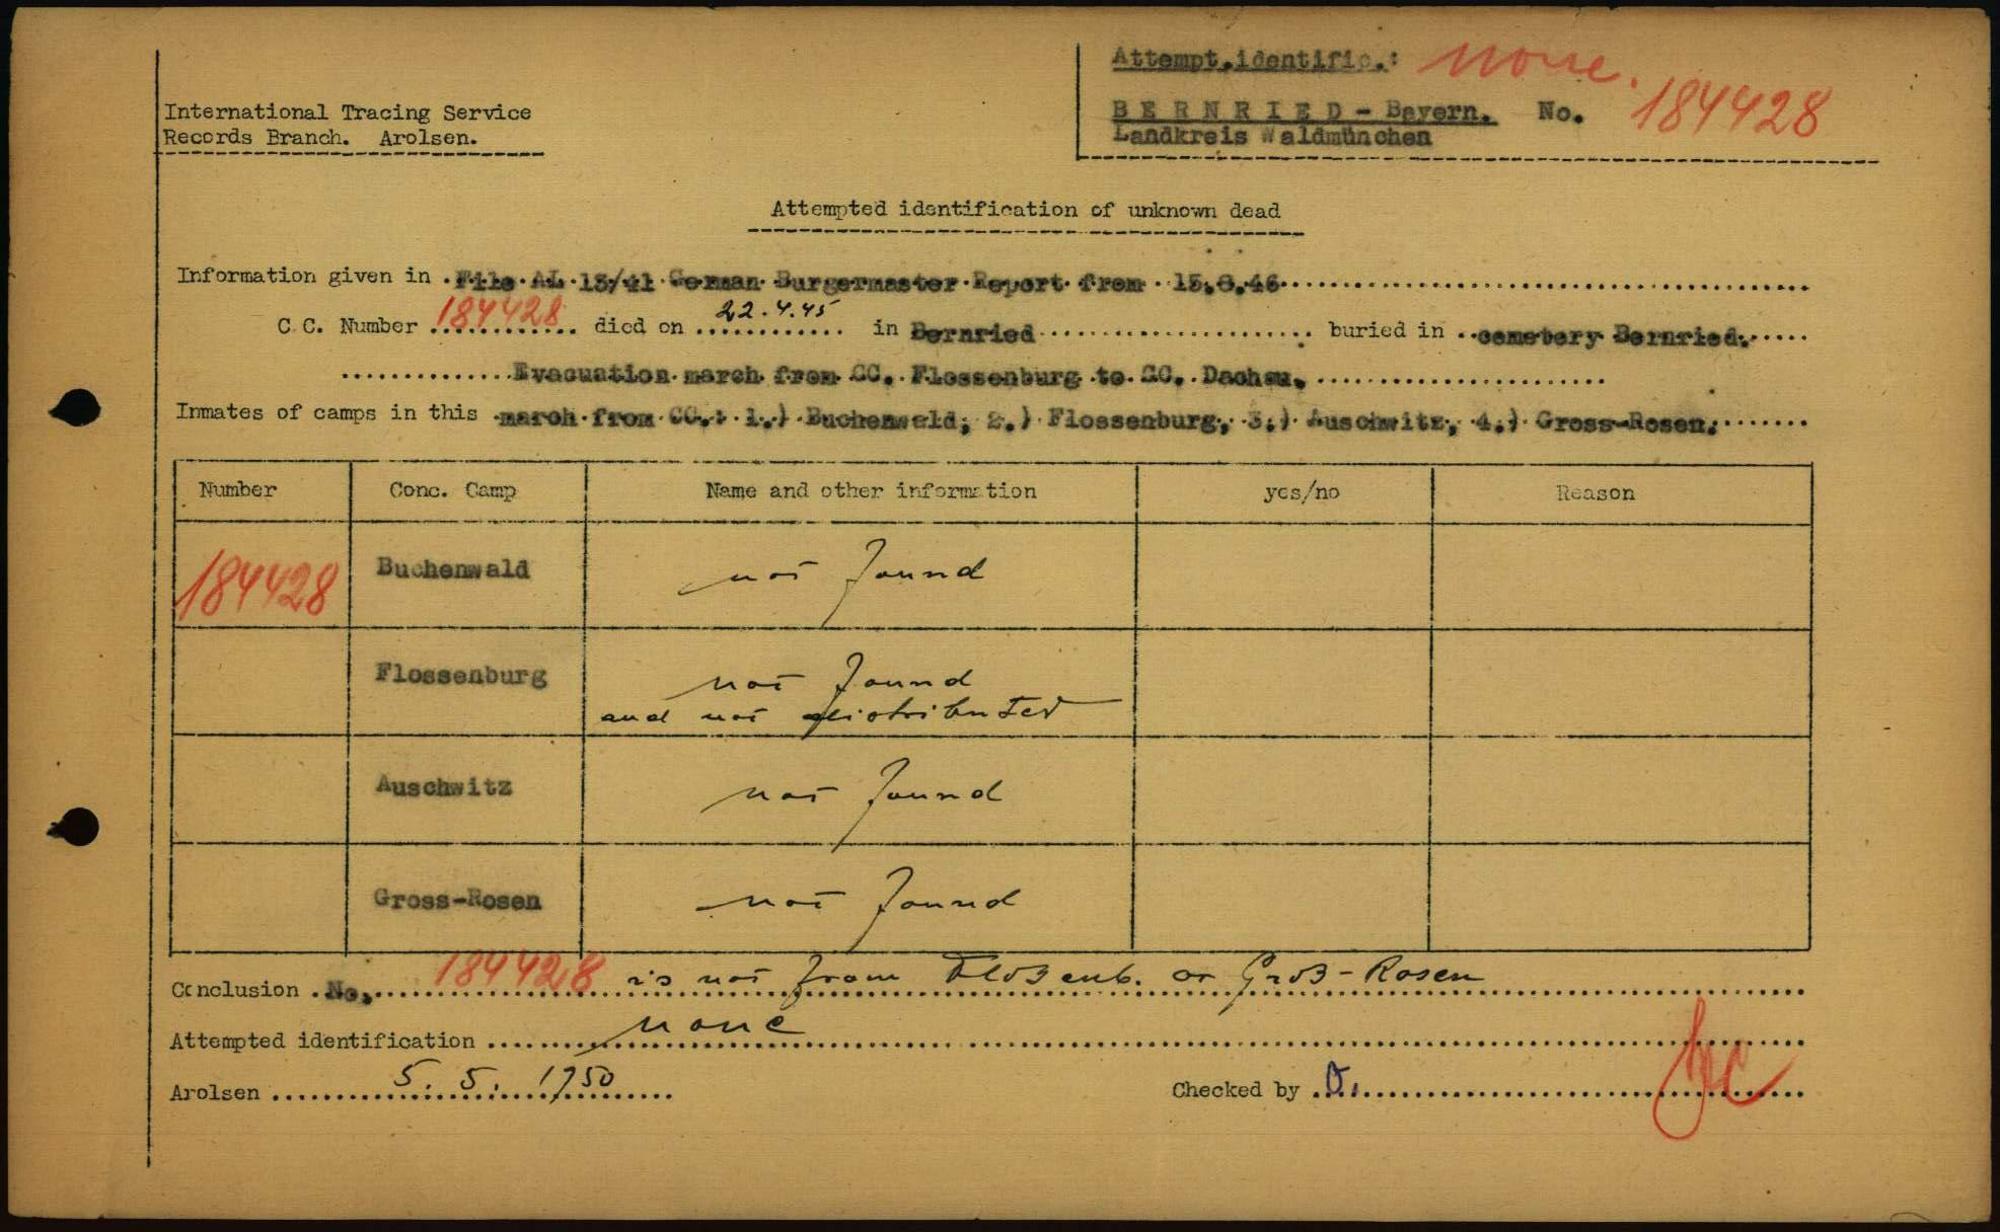 Attempt.identific.: none.
International Tracing Service
Records Branch. Arolsen.
BERNRIED - Bayern. No. 184428
Landkreis Waldmünchen
Attempted identification of unknown dead
Information given in File AL 13/41 German Burgermaster Report from 15.8.46
C.C. Number 184428 died on 22.4.45 in Bernried buried in cemetery Bernried.
Evacuation march from CC. Flossenburg to CC. Dachau.
Inmates of camps in this march from CC.: 1.) Buchenwald; 2.) Flossenburg, 3.) Auschwitz, 4.) Gross-Rosen.
Number Conc. Camp Name and other information yes/no Reason
184428 Buchenwald not found
Flossenburg not found
and not distributed
Auschwitz not found
Gross-Rosen not found
Conclusion No. 184428 is not from Floßenb. or Groß-Rosen
Attempted identification none
Arolsen 5. 5. 1950 Checked by